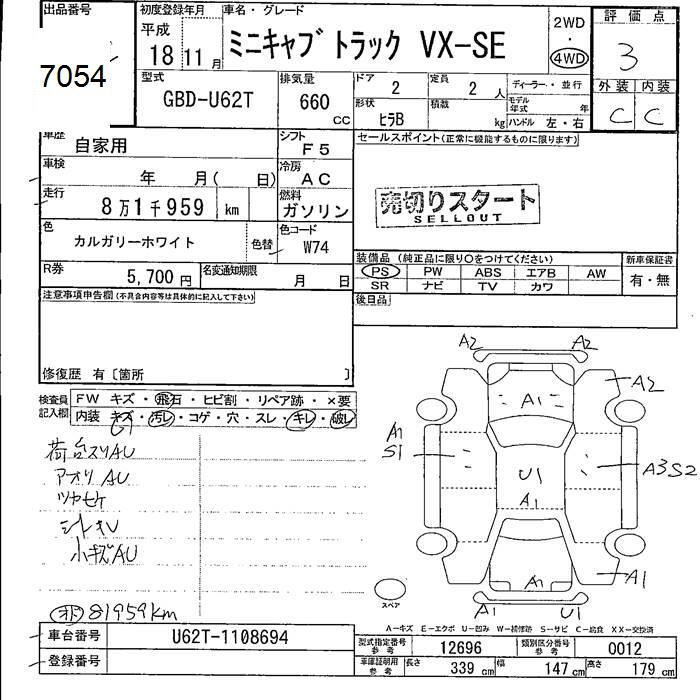 出品番号 初度登録年月 車名・グレード 2WD 評価点
7054 平成 18 11月 ミニキャブ トラック VX-SE ・ 4WD 3
型式 排気量 ドア 2 定員 2 人 ディーラー・並行 外装 内装
GBD-U62T 660 cc 形状 ヒラB 積載 kg モデル年式 年 ハンドル 左・右 C C
車歴 自家用 シフト F5 セールスポイント(正常に機能するものに限ります)
車検 年 月( 日) 冷房 AC
走行 8万1千959 km 燃料 ガソリン 売切りスタート
SELLOUT
色 カルガリーホワイト 色替 色コード W74
装備品(純正品に限り○をつけてください) 新車保証書
R券 5,700円 名変通知期限 月 日 PS PW ABS エアB AW 有・無
SR ナビ TV カワ
注意事項申告欄(不具合内容等は具体的に記入して下さい) 後日品
修復歴 有〔箇所 〕
検査員記入欄 FW キズ・飛石・ヒビ割・リペア跡・×要
内装 キズ・汚レ・コゲ・穴・スレ・キレ・破レ
A2 A2
A1 A2
A1
S1 U1 A3S2
A1
荷台スリAU
アオリAU
ツヤセケ
シートキレ
小キズAU
A1 A1
スペア A1 U1
81959km
A-キズ E-エクボ U-凹み W-補修跡 S-サビ C-腐食 XX-交換済
車台番号 U62T-1108694 型式指定番号 参考 12696 類別区分番号 参考 0012
登録番号 車庫証明用 参考 長さ 339 cm 幅 147 cm 高さ 179 cm